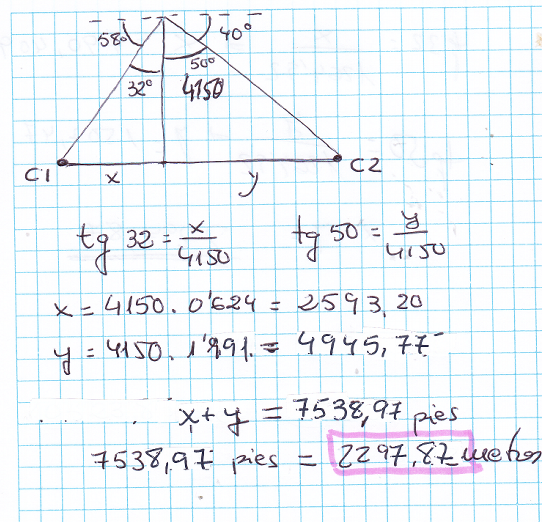 58° 40°
50°
32° 4150
C1 x y C2
tg 32 = x/4150 tg 50 = y/4150
x = 4150 . 0'624 = 2593,20
y = 4150 . 1'191. = 4945,77
. . . . x + y = 7538,97 pies
7538,97 pies = 2297,87 metros